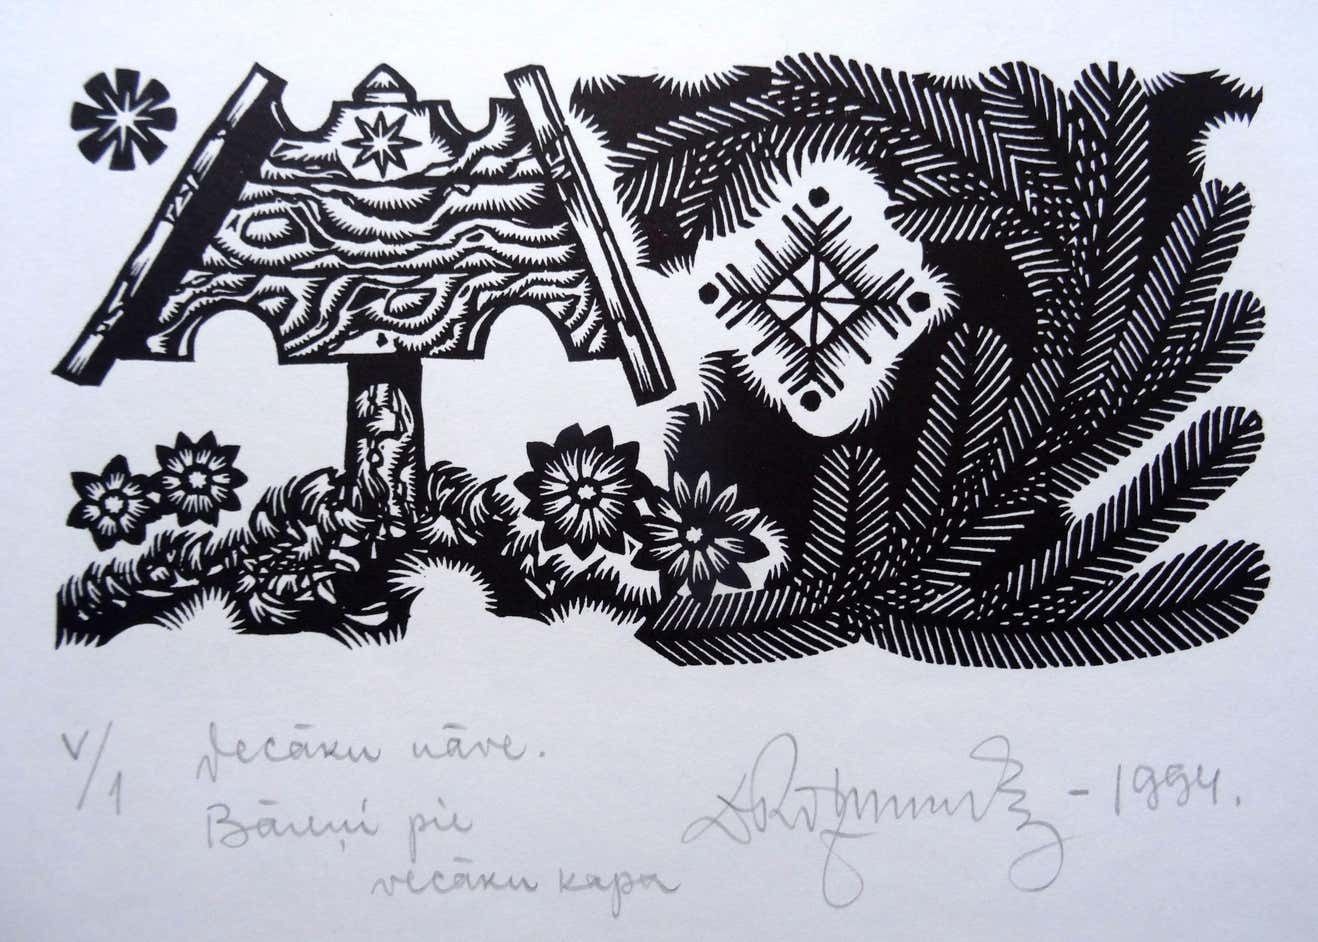 V/1 Vecāku nāve.
Bāreņi pie
vecāku kapa
Rožkalns - 1994.